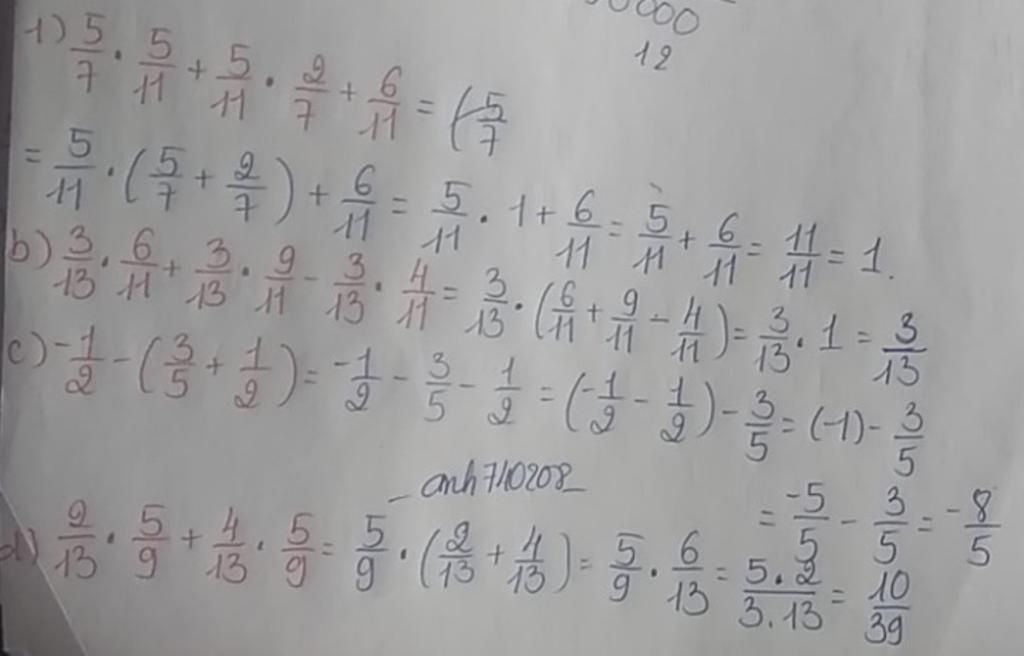 0000
12
1) 5/7 . 5/11 + 5/11 . 2/7 + 6/11 = (5/7
= 5/11 . (5/7 + 2/7) + 6/11 = 5/11 . 1 + 6/11 = 5/11 + 6/11 = 11/11 = 1.
b) 3/13 . 6/11 + 3/13 . 9/11 - 3/13 . 4/11 = 3/13 . (6/11 + 9/11 - 4/11) = 3/13 . 1 = 3/13
c) -1/2 - (3/5 + 1/2) = -1/2 - 3/5 - 1/2 = (-1/2 - 1/2) - 3/5 = (-1) - 3/5
= -5/5 - 3/5 = -8/5
_ anh740208_
d) 2/13 . 5/9 + 4/13 . 5/9 = 5/9 . (2/13 + 4/13) = 5/9 . 6/13 = 5.2/3.13 = 10/39